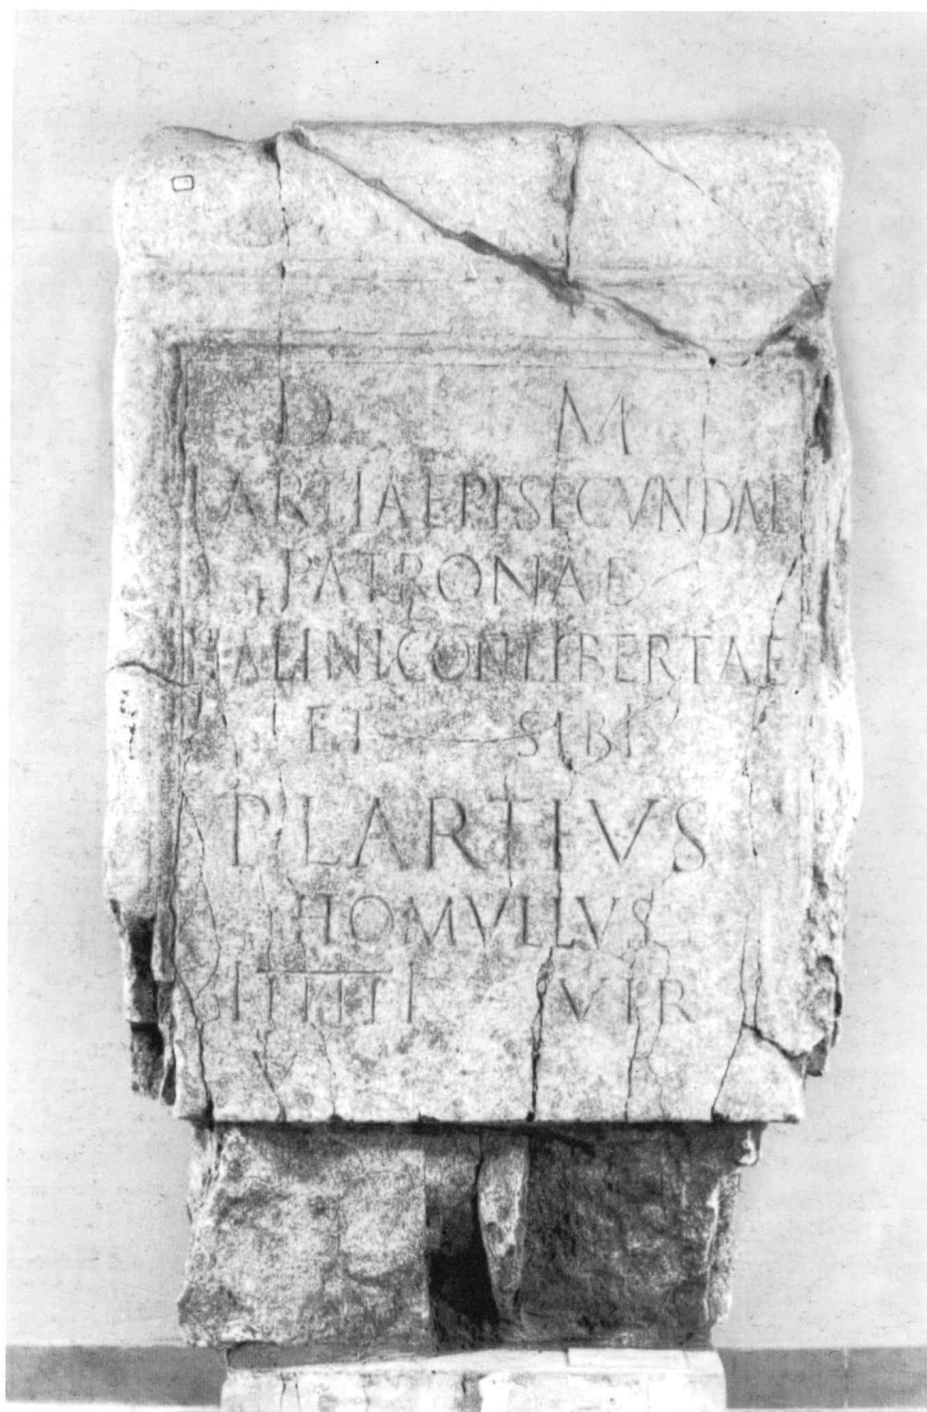 D M
LARTIAE P L SECVNDAE
PATRONAE
HALINI CONLIBERTAE
ET SIBI
P LARTIVS
HOMVLLVS
IIIIII VIR